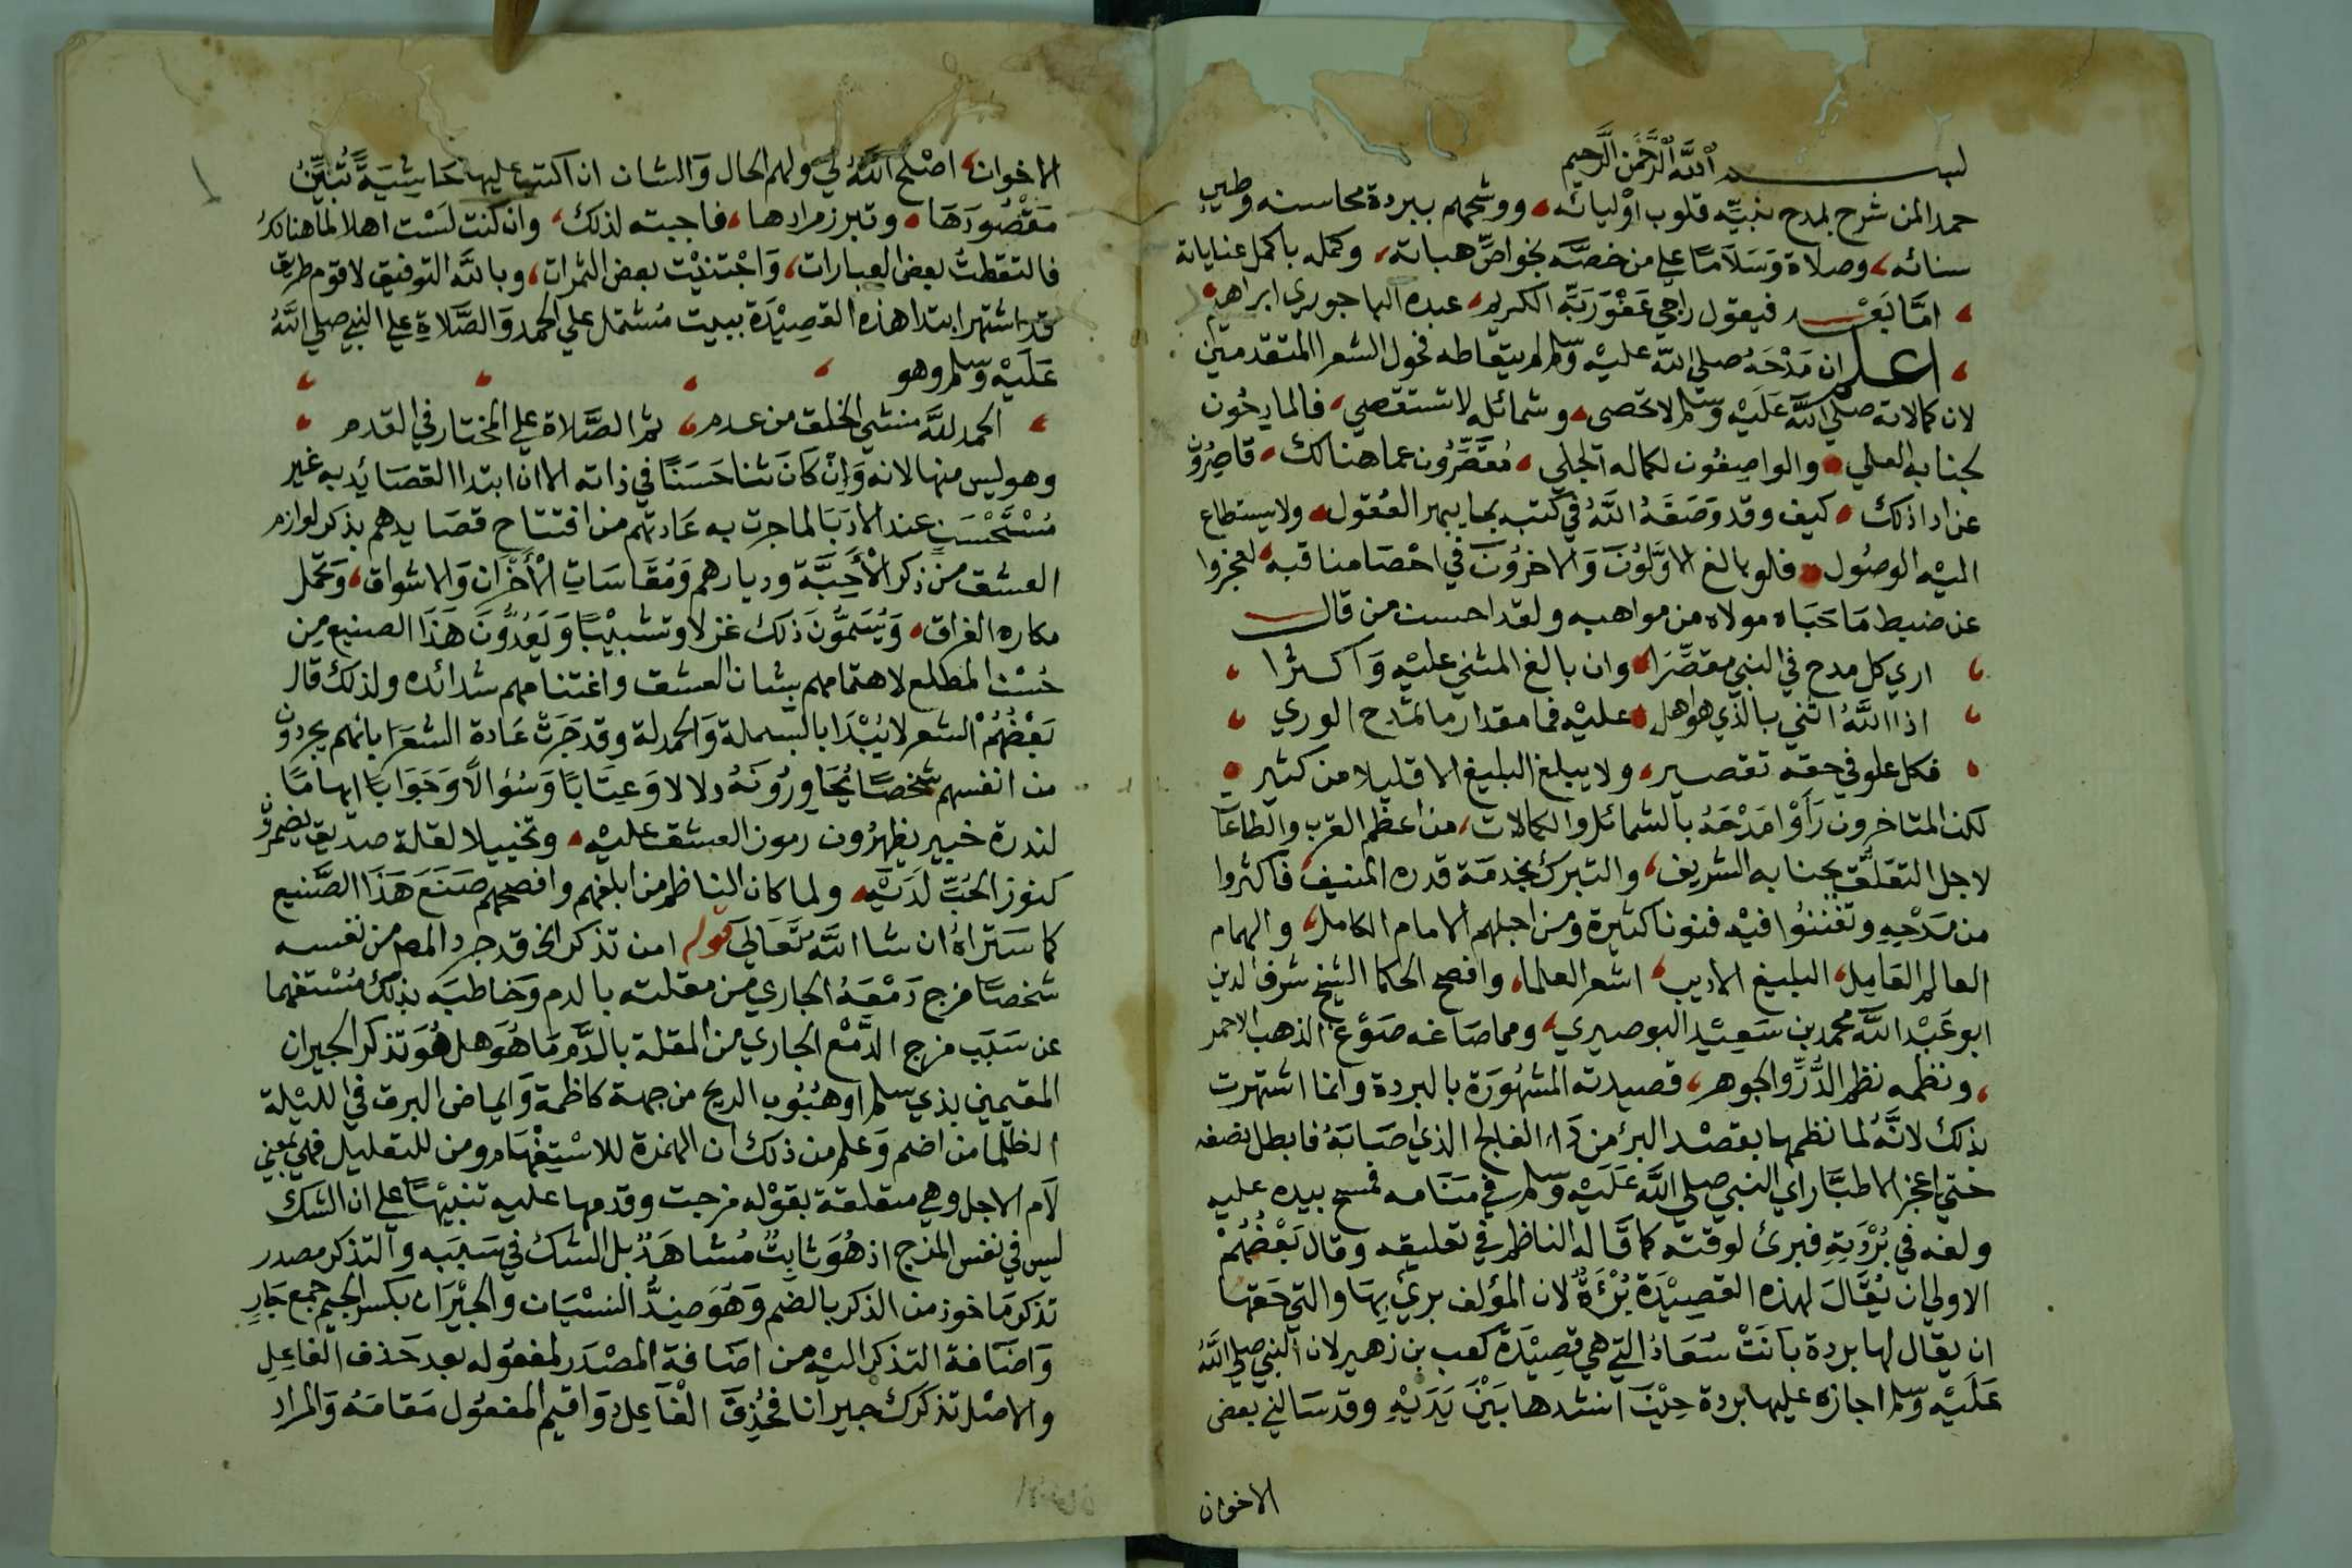 بسم الله الرحمن الرحيم
حمدا لمن شرح بمدح نبيه قلوب اوليائه، ووشحهم ببردة محاسنه وطيب
سنائه، وصلاة وسلاما علي من خصه بخواص هباته، وكمله باكمل عناياته
، اما بعد فيقول راجي عفو ربه الكريم، عبده الباجوري ابراهيم
، اعلم ان مدحه صلي الله عليه وسلم لم يتعاطه فحول الشعرا المتقدمين
لان كمالاته صلي الله عليه وسلم لا تحصي، وشمائله لا تستقصي، فالمادحون
لجنابه العلي، والواصفون لكماله الجلي، مقصرون عما هنالك، قاصرون
عن اداذلك، كيف وقد وصفه الله في كتبه بما يبهر العقول، ولا يستطاع
اليه الوصول، فلو بالغ الاولون والاخرون في احصا مناقبه، لعجزوا
عن ضبط ما حباه مولاه من مواهبه ولقد احسن من قال
، اري كل مدح في النبي مقصرا، وان بالغ المثني عليه واكثرا ،
، اذا الله اثني بالذي هو اهل، عليه فما مقدار ما تمدح الوري ،
، فكل علو في حقه تقصير، ولا يبلغ البليغ الا قليلا من كثير ،
لكن المتاخرون راوا مدحه بالشمائل والكمالات، من اعظم القرب والطاعات
لاجل التعلق بجنابه الشريف، والتبرك بخدمة قدره المنيف، فاكثروا
من مدحه وتفننوا فيه فنونا كثيرة ومن اجلهم الامام الكامل، والهمام
العالم العامل، البليغ الاديب، اشعر العلما، وافصح الحكما الشيخ شرف الدين
ابو عبد الله محمد بن سعيد البوصيري، ومما صاغه صوغ الذهب الاحمر
، ونظمه نظم الدر والجوهر، قصيدته المشهورة بالبردة وانما اشتهرت
بذلك لانه لما نظمها بقصد البرء من داء الفالج الذي اصابه فابطل نصفه
حتي اعجز الاطبا راي النبي صلي الله عليه وسلم في منامه فمسح بيده عليه
ولفه في بردته فبرئ لوقته كما قاله الناظم في تعليقه وقال بعضهم
الاولي ان يقال لهذه القصيدة برءة لان المؤلف برئ بها والتي حقها
ان يقال لها بردة بانت سعاد التي هي قصيدة كعب بن زهير لان النبي صلي الله
عليه وسلم اجازه عليها بردة حين انشدها بين يديه وقد سالني بعض
الاخوان
الاخوان، اصلح الله لي ولهم الحال والشان ان اكتب عليها حاشية تبين
مقصودها، وتبرز مرادها، فاجبته لذلك، وان كنت لست اهلا لما هنالك
فالتقطت بعض العبارات، واجتنيت بعض الثمرات، وبالله التوفيق لاقوم طريق
قد اشتهر ابتدا هذه القصيدة ببيت مشتمل علي الحمد والصلاة علي النبي صلي الله
عليه وسلم وهو
، الحمد لله منشي الخلق من عدم، ثم الصلاة علي المختار في القدم ،
وهو ليس منها لانه وان كان ثنا حسنا في ذاته الا ان ابتدا القصائد به غير
مستحسن عند الادبا لما جرت به عادتهم من افتتاح قصايدهم بذكر لوازم
العشق من ذكر الاحبة وديارهم ومقاسات الاحزان والاشواق، وتحمل
مكاره الفراق، ويسمون ذلك غزلا وتشبيبا ويعدون هذا الصنيع من
حسن المطلع لاهتمامهم بشان العشق واغتنامهم شدائده ولذلك قال
بعضهم الشعر لا يبدا بالبسملة والحمدلة وقد جرت عادة الشعرا بانهم يجردون
من انفسهم شخصا يحاورونه دلالا وعتابا وسؤالا وجوابا ايهاما
لندرة خبير يظهرون رموز العشق عليه، وتخييلا لقلة صديق يضمرون
كنوز الحب لديه، ولما كان الناظم من ابلغهم وافصحهم صنع هذا الصنيع
كما ستراه ان شا الله تعالي قوله امن تذكر الخ قد جرد المص من نفسه
شخصا مزج دمعه الجاري من مقلته بالدم وخاطبه بذلك مستفهما
عن سبب مزج الدمع الجاري من المقلة بالدم ما هو هل هو تذكر الجيران
المقيمين بذي سلم او هبوب الريح من جهة كاظمة وايماض البرق في الليلة
الظلما من اضم وعلم من ذلك ان الهمزة للاستفهام ومن للتعليل فهي بمعني
لام الاجل وهي متعلقة بقوله مزجت وقدمها عليه تنبيها علي ان الشك
ليس في نفس المزج اذ هو ثابت مشاهد بل الشك في سببه والتذكر مصدر
تذكر ماخوذ من الذكر بالضم وهو ضد النسيان والجيران بكسر الجيم جمع جار
واضافة التذكر اليه من اضافة المصدر لمفعوله بعد حذف الفاعل
والاصل تذكرك جيرانا فحذف الفاعل واقيم المفعول مقامه والمراد